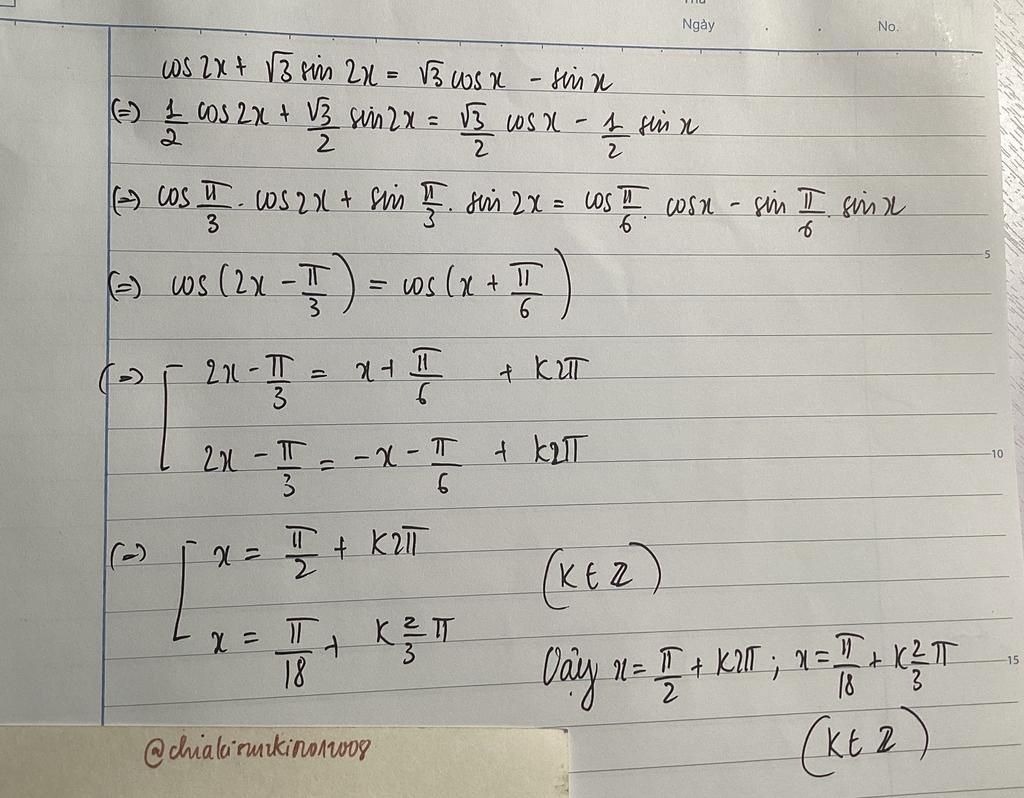 Thứ
Ngày . . No.
cos 2x + √3 sin 2x = √3 cos x - sin x
(=) 1/2 cos 2x + √3/2 sin 2x = √3/2 cos x - 1/2 sin x
(=) cos π/3 . cos 2x + sin π/3 . sin 2x = cos π/6 . cos x - sin π/6 . sin x
5
(=) cos (2x - π/3) = cos (x + π/6)
(=) [ 2x - π/3 = x + π/6 + K2π
2x - π/3 = -x - π/6 + K2π
10
(=) [ x = π/2 + K2π
(K ∈ Z)
x = π/18 + K 2/3 π
Vậy x = π/2 + K2π ; x = π/18 + K 2/3 π
15
(K ∈ Z)